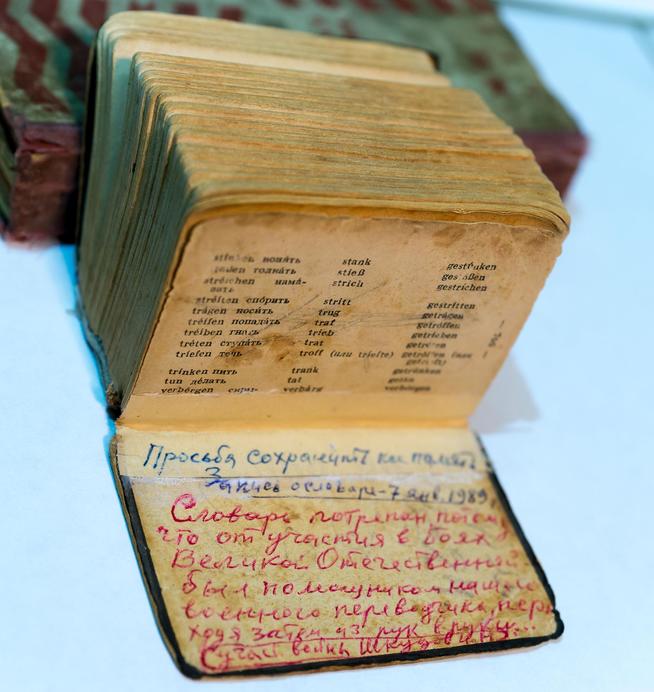 вонять stank gestunken
толкать stieß
strich gestrichen
streiten спорить stritt gestritten
tragen носить trug getragen
treffen попадать traf getroffen
treiben гнать trieb getrieben
treten ступать trat getreten
triefen течь troff (или triefte)
trinken пить trank getrunken
tun делать tat getan
verbergen verbarg verborgen
Просьба сохранить как память
Запись о словаре - 7 янв. 1989
Словарь потрепан, потому
что от участия в боях
Великой Отечественной
был помощником нашего
военного переводчика, пере
ходя затем из рук в руки...
войны